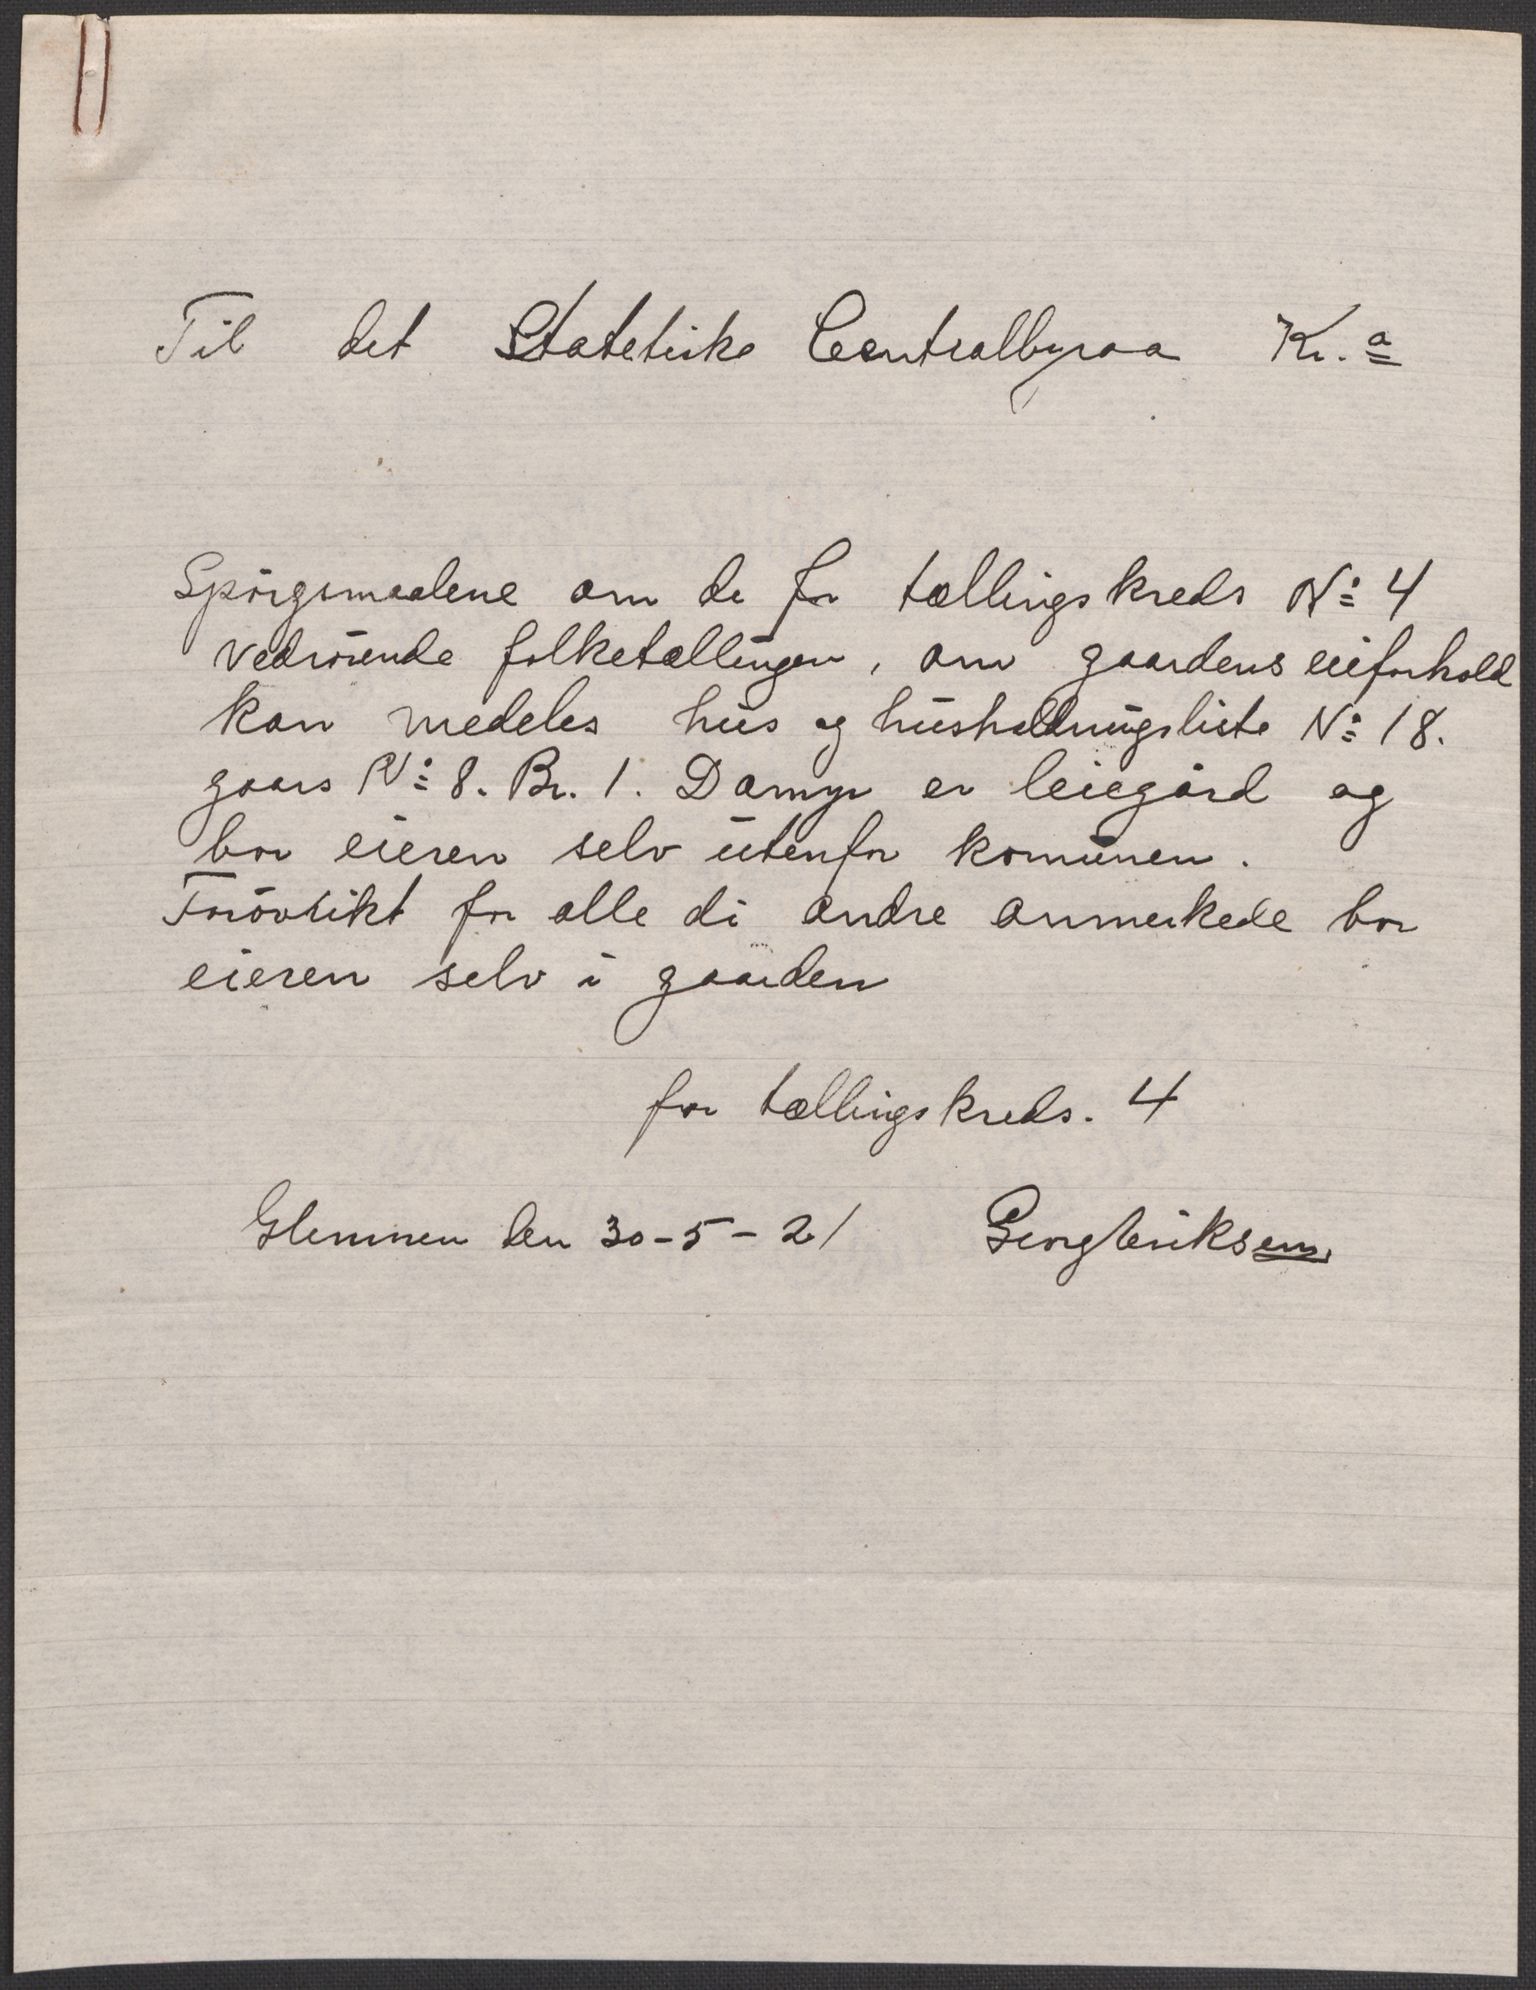 Til det Statetiske Centralbyraa Kr.a
Spörgsmaalene om de for tællingskreds No 4
vedrörende folketællingen, om gaardens eieforhold
kan medeles hus og husholdningsliste No 18.
gaars No 8. Br. 1. Damyr er leiegård og
bor eieren selv utenfor komunen.
for alle di andre anmerkede bor
eieren selv i gaarden
for tællingskreds. 4
Glemmen den 30-5-21 Georg Eriksen.